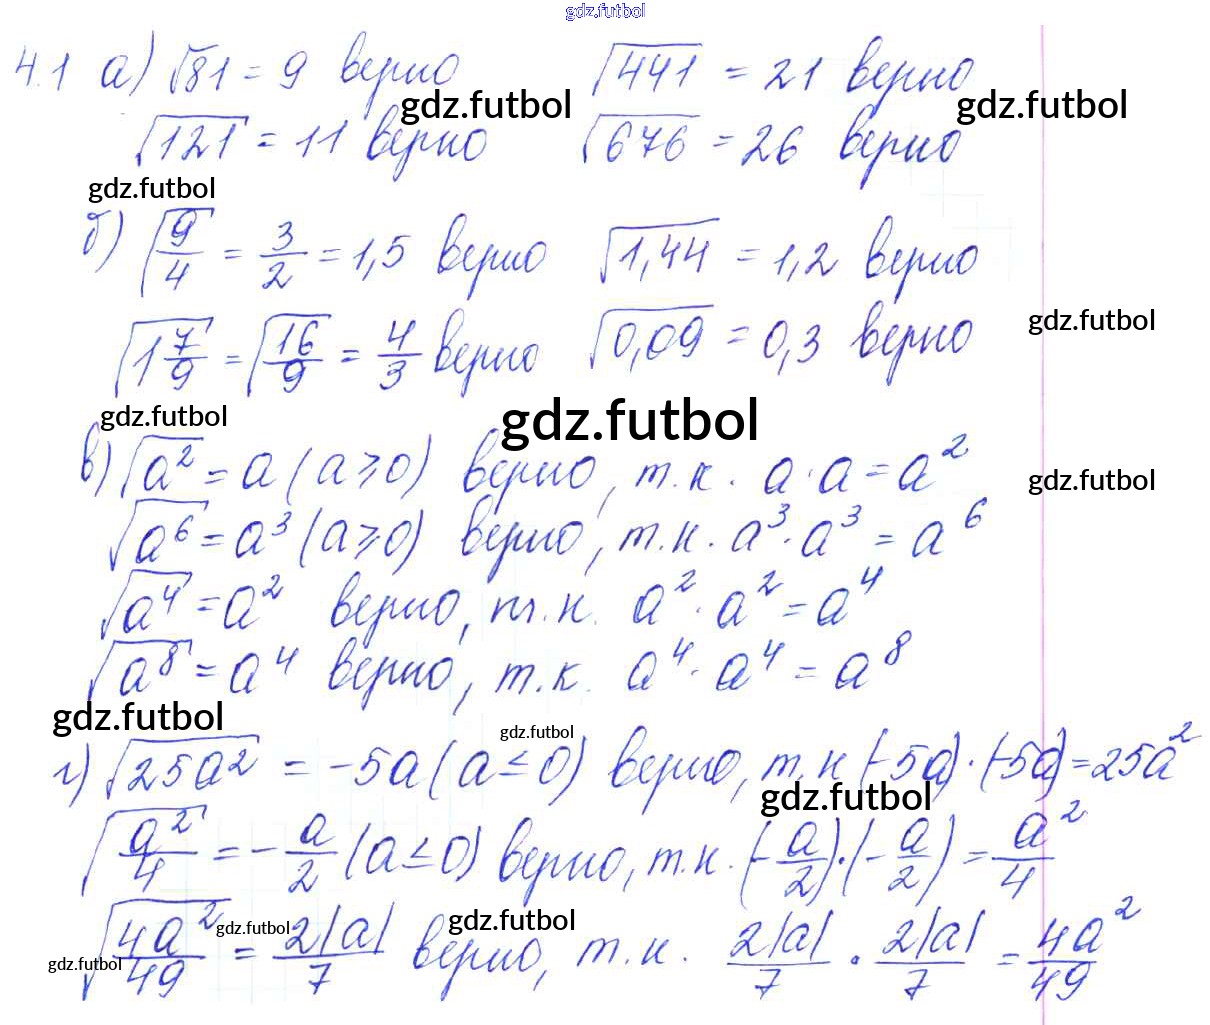 gdz.futbol
4.1 а) √81 = 9 верно √441 = 21 верно
gdz.futbol gdz.futbol
√121 = 11 верно √676 = 26 верно
gdz.futbol
б) √(9/4) = 3/2 = 1,5 верно √1,44 = 1,2 верно
gdz.futbol
√(1 7/9) = √(16/9) = 4/3 верно √0,09 = 0,3 верно
gdz.futbol gdz.futbol
в) √a² = a (a ⩾ 0) верно, т.к. a · a = a²
gdz.futbol
√a⁶ = a³ (a ⩾ 0) верно, т.к. a³ · a³ = a⁶
√a⁴ = a² верно, т.к. a² · a² = a⁴
√a⁸ = a⁴ верно, т.к. a⁴ · a⁴ = a⁸
gdz.futbol gdz.futbol
г) √25a² = -5a (a ≤ 0) верно, т.к (-5a) · (-5a) = 25a²
gdz.futbol
√(a²/4) = -a/2 (a ≤ 0) верно, т.к. (-a/2) · (-a/2) = a²/4
gdz.futbol gdz.futbol
√(4a²/49) = 2|a|/7 верно, т.к. 2|a|/7 · 2|a|/7 = 4a²/49
gdz.futbol